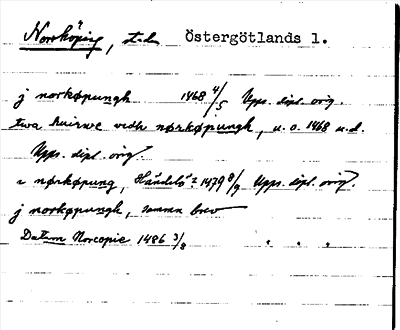 Norrköping, stad Östergötlands l.
j norkøpungh 1468 4/5 Upps. dipl. orig.
twa hwirwe vidh nørkøpungh, u.o. 1468 u.d.
Upps. dipl. orig.
i nørkøpung, 1479 8/9 Upps. dipl. orig.
j norkøpungh, samma brev
Datum Norcopie 1486 3/8 " " "